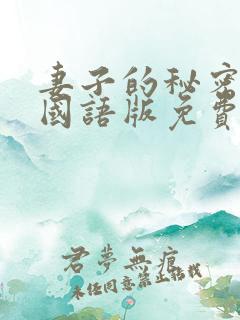 妻子的秘密
國語版免費
君夢無痕
未経同意禁止搭載